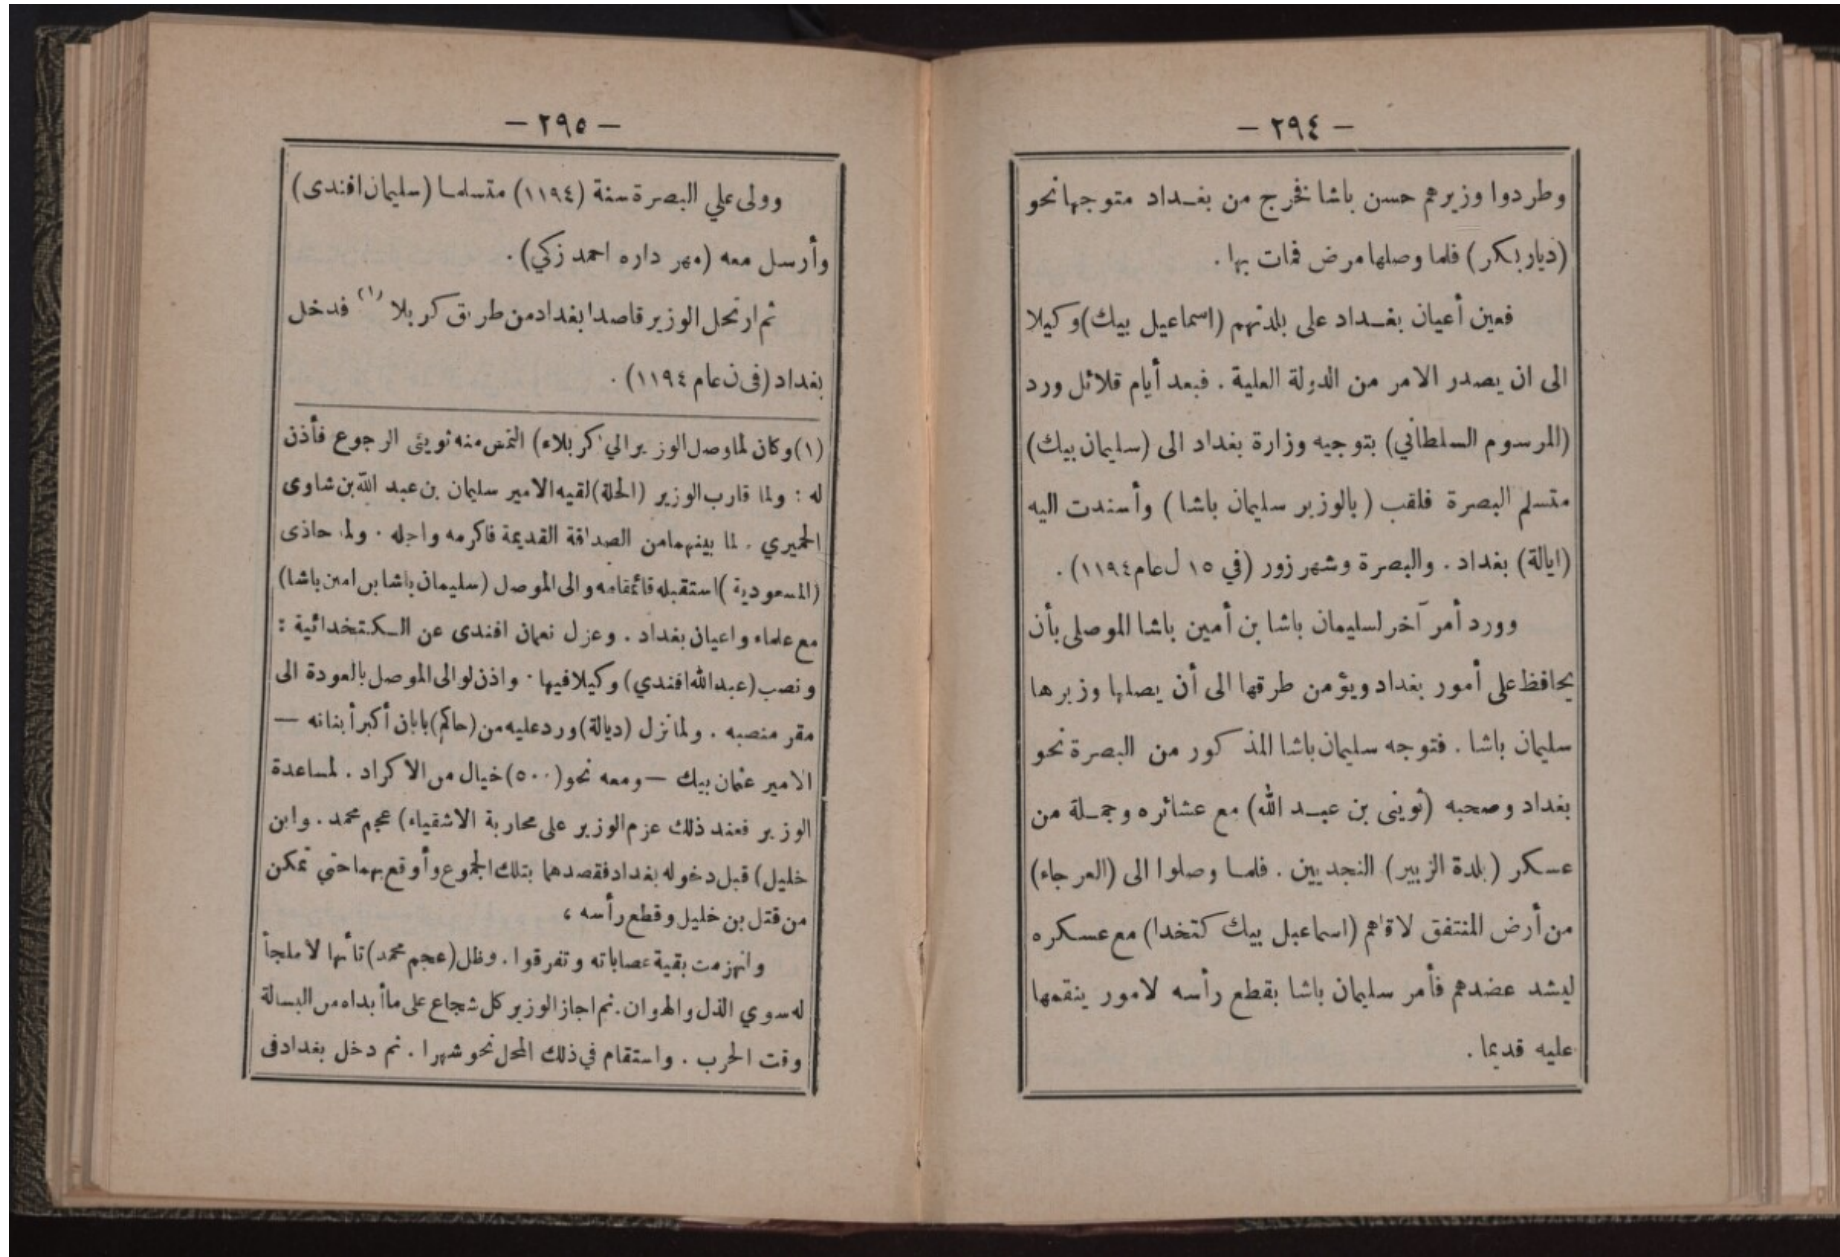 — ٢٩٤ —
وطردوا وزيرهم حسن باشا فخرج من بغـداد متوجها نحو
(ديار بكر) فلما وصلها مرض فمات بها .
فعين أعيان بغـداد على بلدتهم (اسماعيل بيك) وكيلا
الى ان يصدر الامر من الدولة العلية . فبعد أيام قلائل ورد
(المرسوم السلطاني) بتوجيه وزارة بغداد الى (سليمان بيك)
متسلم البصرة فلقب (بالوزير سليمان باشا) وأسندت اليه
(ايالة) بغداد . والبصرة وشهر زور (في ١٥ ل عام ١١٩٤) .
وورد أمر آخر لسليمان باشا بن أمين باشا الموصلى بأن
يحافظ على أمور بغداد ويؤمن طرقها الى أن يصلها وزيرها
سليمان باشا . فتوجه سليمان باشا المذكور من البصرة نحو
بغداد وصحبه (ثوينى بن عبـد الله) مع عشائره وجمـلة من
عسكر (بلدة الزبير) النجديين . فلمـا وصلوا الى (العرجاء)
من أرض المنتفق لاقاهم (اسماعيل بيك كتخدا) مع عسكره
ليشد عضدهم فأمر سليمان باشا بقطع رأسه لامور ينقمها
عليه قديما .
— ٢٩٥ —
وولى علي البصرة سنة (١١٩٤) متسلمـا (سليمان افندى)
وأرسل معه (مهر داره احمد زكي) .
ثم ارتحل الوزير قاصدا بغداد من طريق كربلا (١) فدخل
بغداد (فى ن عام ١١٩٤) .
(١) وكان لما وصل الوزير الي (كربلاء) التمس منه ثوينى الرجوع فأذن
له : ولما قارب الوزير (الحلة) لقيه الامير سليمان بن عبد الله بن شاوى
الحميري . لما بينهما من الصداقة القديمة فاكرمه واجله . ولما حاذى
(المسعودية) استقبله قائمقامه والى الموصل (سليمان باشا بن امين باشا)
مع علماء واعيان بغداد . وعزل نعمان افندى عن الـكـتخدائية :
ونصب (عبد الله افندي) وكيلا فيها . واذن لوالى الموصل بالعودة الى
مقر منصبه . ولما نزل (ديالة) ورد عليه من (حاكم) بابان أكبر أبنائه —
الامير عثمان بيك — ومعه نحو (٥٠٠) خيال من الاكراد . لمساعدة
الوزير فعند ذلك عزم الوزير على محاربة الاشقياء) عجم محمد . وابن
خليل) قبل دخوله بغداد فقصدهما بتلك الجموع وأوقع بهما حتي تمكن
من قتل بن خليل وقطع رأسه ،
وانهزمت بقية عصاباته وتفرقوا . وظل (عجم محمد) تائها لا ملجأ
له سوي الذل والهوان . ثم اجاز الوزير كل شجاع على ما أبداه من البسالة
وقت الحرب . واستقام في ذلك المحل نحو شهرا . ثم دخل بغداد فى